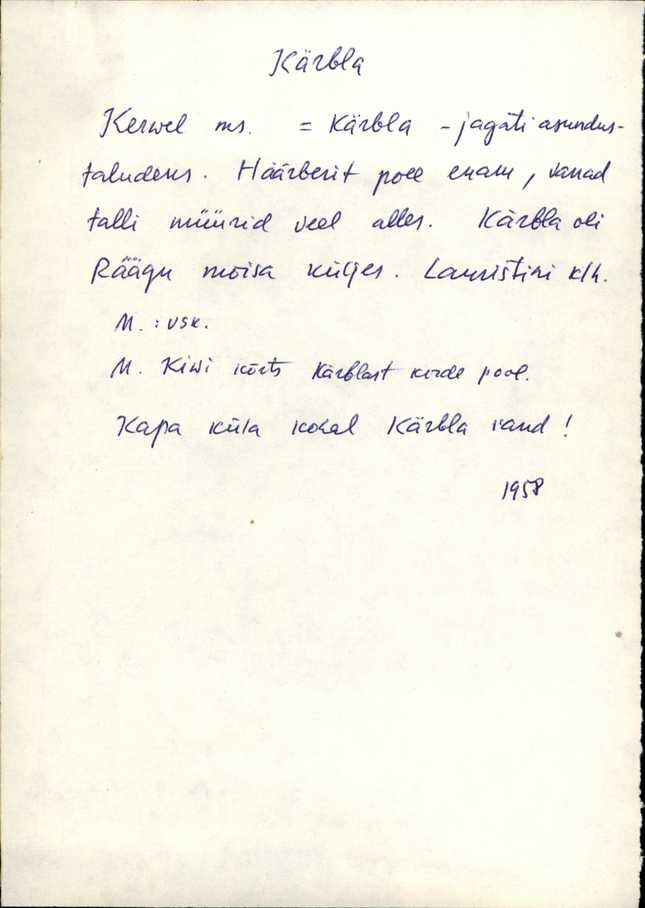 Kärbla
Kerwel ms. = Kärbla - jagati asundus-
taludeks. Häärberit pole enam, vanad
talli müürid veel alles. Kärbla oli
Räägu mõisa küljes. Lauristini klh.
M. : vsk.
M. Kiwi kõrts Kärblast kirde pool.
Kapa küla kohal Kärbla rand!
1958